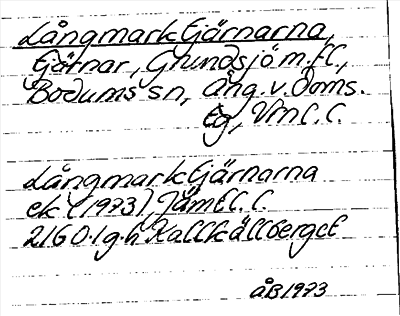 Långmarktjärnarna,
tjärnar, Grundsjö m.fl.,
Bodums sn, Ång. v. Doms.
Eg, Vml. l.
Långmarktjärnarna
ek (1973), Jämtl. l.
21G 0-1 g-h Kallkällberget
åB 1973